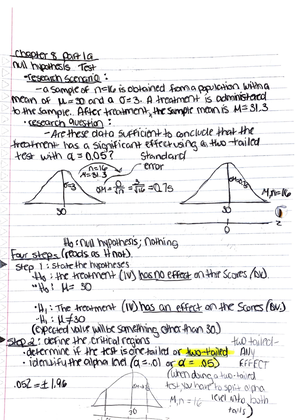 Chapter 8 part 1a
null hypothesis Test
-research scenario:
-a sample of n=16 is obtained from a population with a
mean of μ=30 and a σ=3. A treatment is administered
to the sample. After treatment, the sample mean is M=31.3
-research question:
-Are these data sufficient to conclude that the
treatment has a significant effect using a two-tailed
test with α=0.05?
Standard
error
n=16
M=31.3
σ=3
σM = σ/√n = 3/√16 = 0.75
M, n=16
30
30
0
z
H₀: null hypothesis; nothing
Four steps (reads as H not).
Step 1: state the hypotheses
H₀: the treatment (IV) has no effect on the scores (DV).
H₀: μ= 30
H₁: The treatment (IV) has an effect on the Scores (DV).
H₁: μ≠30
(expected value will be something other than 30)
Step 2: define the critical regions
two-tailed-
determine if the test is one tailed or two-tailed
ANY
identify the alpha level (α=.01) or α= .05)
EFFECT
(when doing a two-tailed
.052 = ± 1.96
test you have to split alpha
level into both
M, n=16
tails)
30